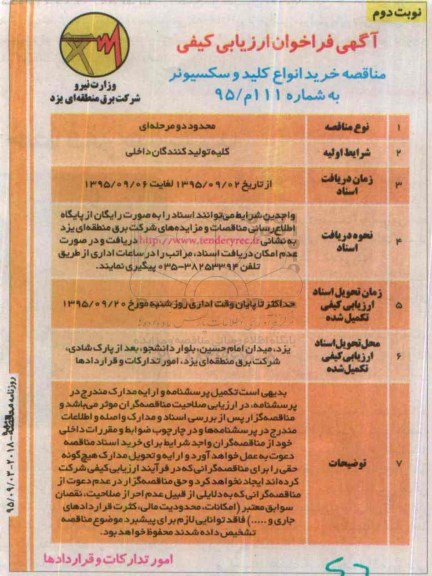 نوبت دوم
آگهی فراخوان ارزیابی کیفی
مناقصه خرید انواع کلید و سکسیونر
به شماره ۱۱۱م/۹۵
وزارت نیرو
شرکت برق منطقه‌ای یزد
۱ نوع مناقصه محدود دو مرحله‌ای
۲ شرایط اولیه کلیه تولید کنندگان داخلی
۳ زمان دریافت اسناد از تاریخ ۱۳۹۵/۰۹/۰۲ لغایت ۱۳۹۵/۰۹/۰۶
۴ نحوه دریافت اسناد
واجدین شرایط می‌توانند اسناد را به صورت رایگان از پایگاه
اطلاع رسانی مناقصات و مزایده‌های شرکت برق منطقه‌ای یزد
به نشانی http://www.tenderyrec.ir دریافت و در صورت
عدم امکان دریافت اسناد، مراتب را در ساعات اداری از طریق
تلفن ۳۸۲۵۳۳۹۴-۰۳۵ پیگیری نمایند.
۵ زمان تحویل اسناد
ارزیابی کیفی
تکمیل شده
حداکثر تا پایان وقت اداری روز شنبه مورخ ۱۳۹۵/۰۹/۲۰
۶ محل تحویل اسناد
ارزیابی کیفی
تکمیل شده
یزد، میدان امام حسین، بلوار دانشجو، بعد از پارک شادی،
شرکت برق منطقه‌ای یزد، امور تدارکات و قراردادها
۷ توضیحات
بدیهی است تکمیل پرسشنامه و ارایه مدارک مندرج در
پرسشنامه، در ارزیابی صلاحیت مناقصه‌گران موثر می‌باشد و
مناقصه‌گزار پس از بررسی اسناد و مدارک واصله و اطلاعات
مندرج در پرسشنامه‌ها و در چارچوب ضوابط و مقررات داخلی
خود از مناقصه‌گران واجد شرایط برای خرید اسناد مناقصه
دعوت به عمل خواهد آورد و ارایه و تحویل مدارک هیچ‌گونه
حقی را برای مناقصه‌گرانی که در فرآیند ارزیابی کیفی شرکت
کرده‌اند ایجاد نخواهد کرد و حق مناقصه‌گزار در عدم دعوت از
مناقصه‌گرانی که به دلایلی از قبیل عدم احراز صلاحیت، نقصان
سوابق معتبر (امکانات، محدودیت مالی، کثرت قراردادهای
جاری و .....) فاقد توانایی لازم برای پیشبرد موضوع مناقصه
تشخیص داده شدند محفوظ خواهد بود.
امور تدارکات و قراردادها
روزنامه مناقصه
۲۰۱۸
۹۵/۰۹/۰۳